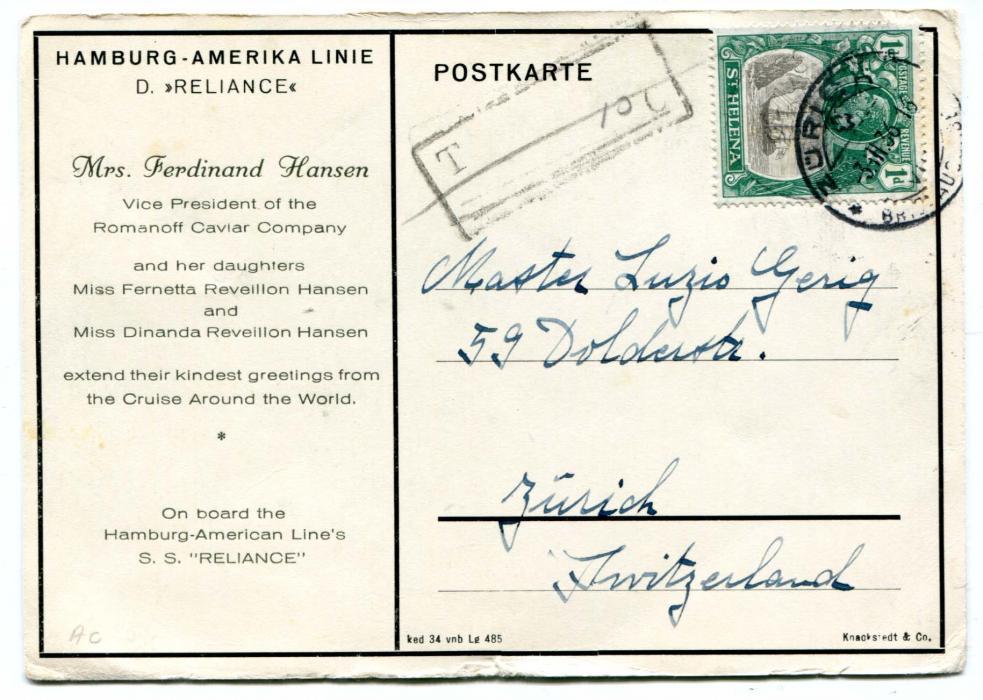 HAMBURG-AMERIKA LINIE
D. »RELIANCE«
Mrs. Ferdinand Hansen
Vice President of the
Romanoff Caviar Company
and her daughters
Miss Fernetta Reveillon Hansen
and
Miss Dinanda Reveillon Hansen
extend their kindest greetings from
the Cruise Around the World.
*
On board the
Hamburg-American Line's
S. S. "RELIANCE"
AC
POSTKARTE
T
10 C
ST HELENA
1d
POSTAGE
REVENUE
1d
ZÜRICH
36
Master Luzio Gerig
59 Dolderstr.
Zürich
Switzerland
ked 34 vnb Lg 485
Knackstedt & Co.